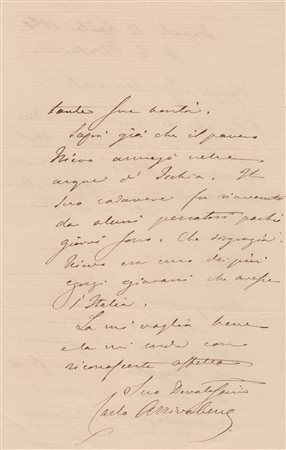 tante sue bontà.
Saprà già che il povero
Nievo annegò nelle
acque di Ischia. Il
suo cadavere fu rinvenuto
da alcuni pescatori pochi
giorni sono. Che disgrazia!
Nievo era uno dei più
egregi giovani che avesse
l'Italia.
La mi voglia bene
e la mi creda con
riconoscente affetto
Suo Devotissimo
Carlo Arrivabene